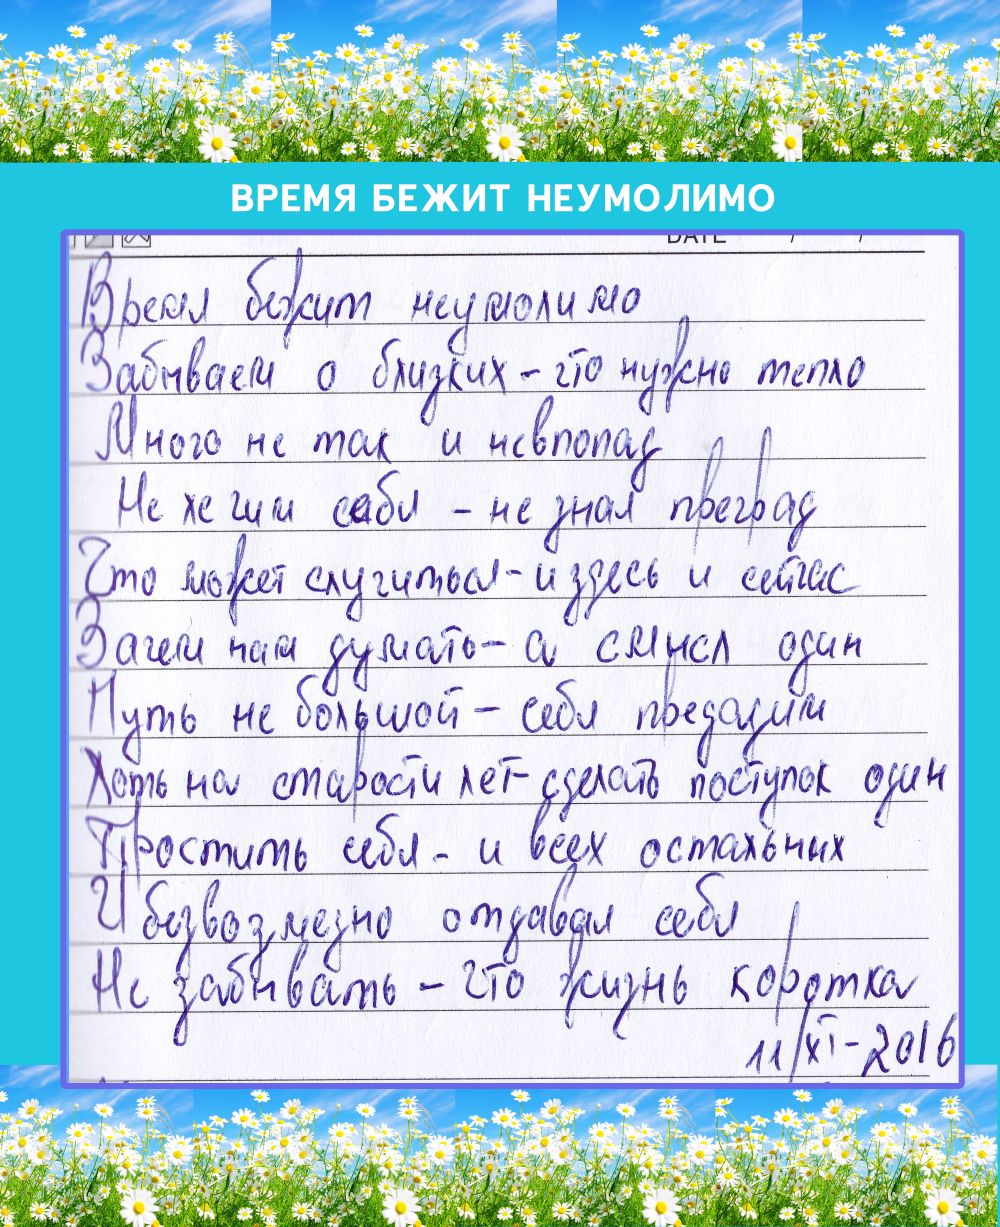 ВРЕМЯ БЕЖИТ НЕУМОЛИМО
DATE / /
Время бежит неумолимо
Забываем о близких - что нужно тепло
Много не так и невпопад
Не хотим себя - не зная преград
Что может случиться - и здесь и сейчас
Зачем нам думать - а смысл один
Путь не большой - себя предадим
Хоть на старости лет - сделать поступок один
Простить себя - и всех остальных
И безвозмездно отдавая себя
Не забывать - что жизнь коротка
11/XI-2016